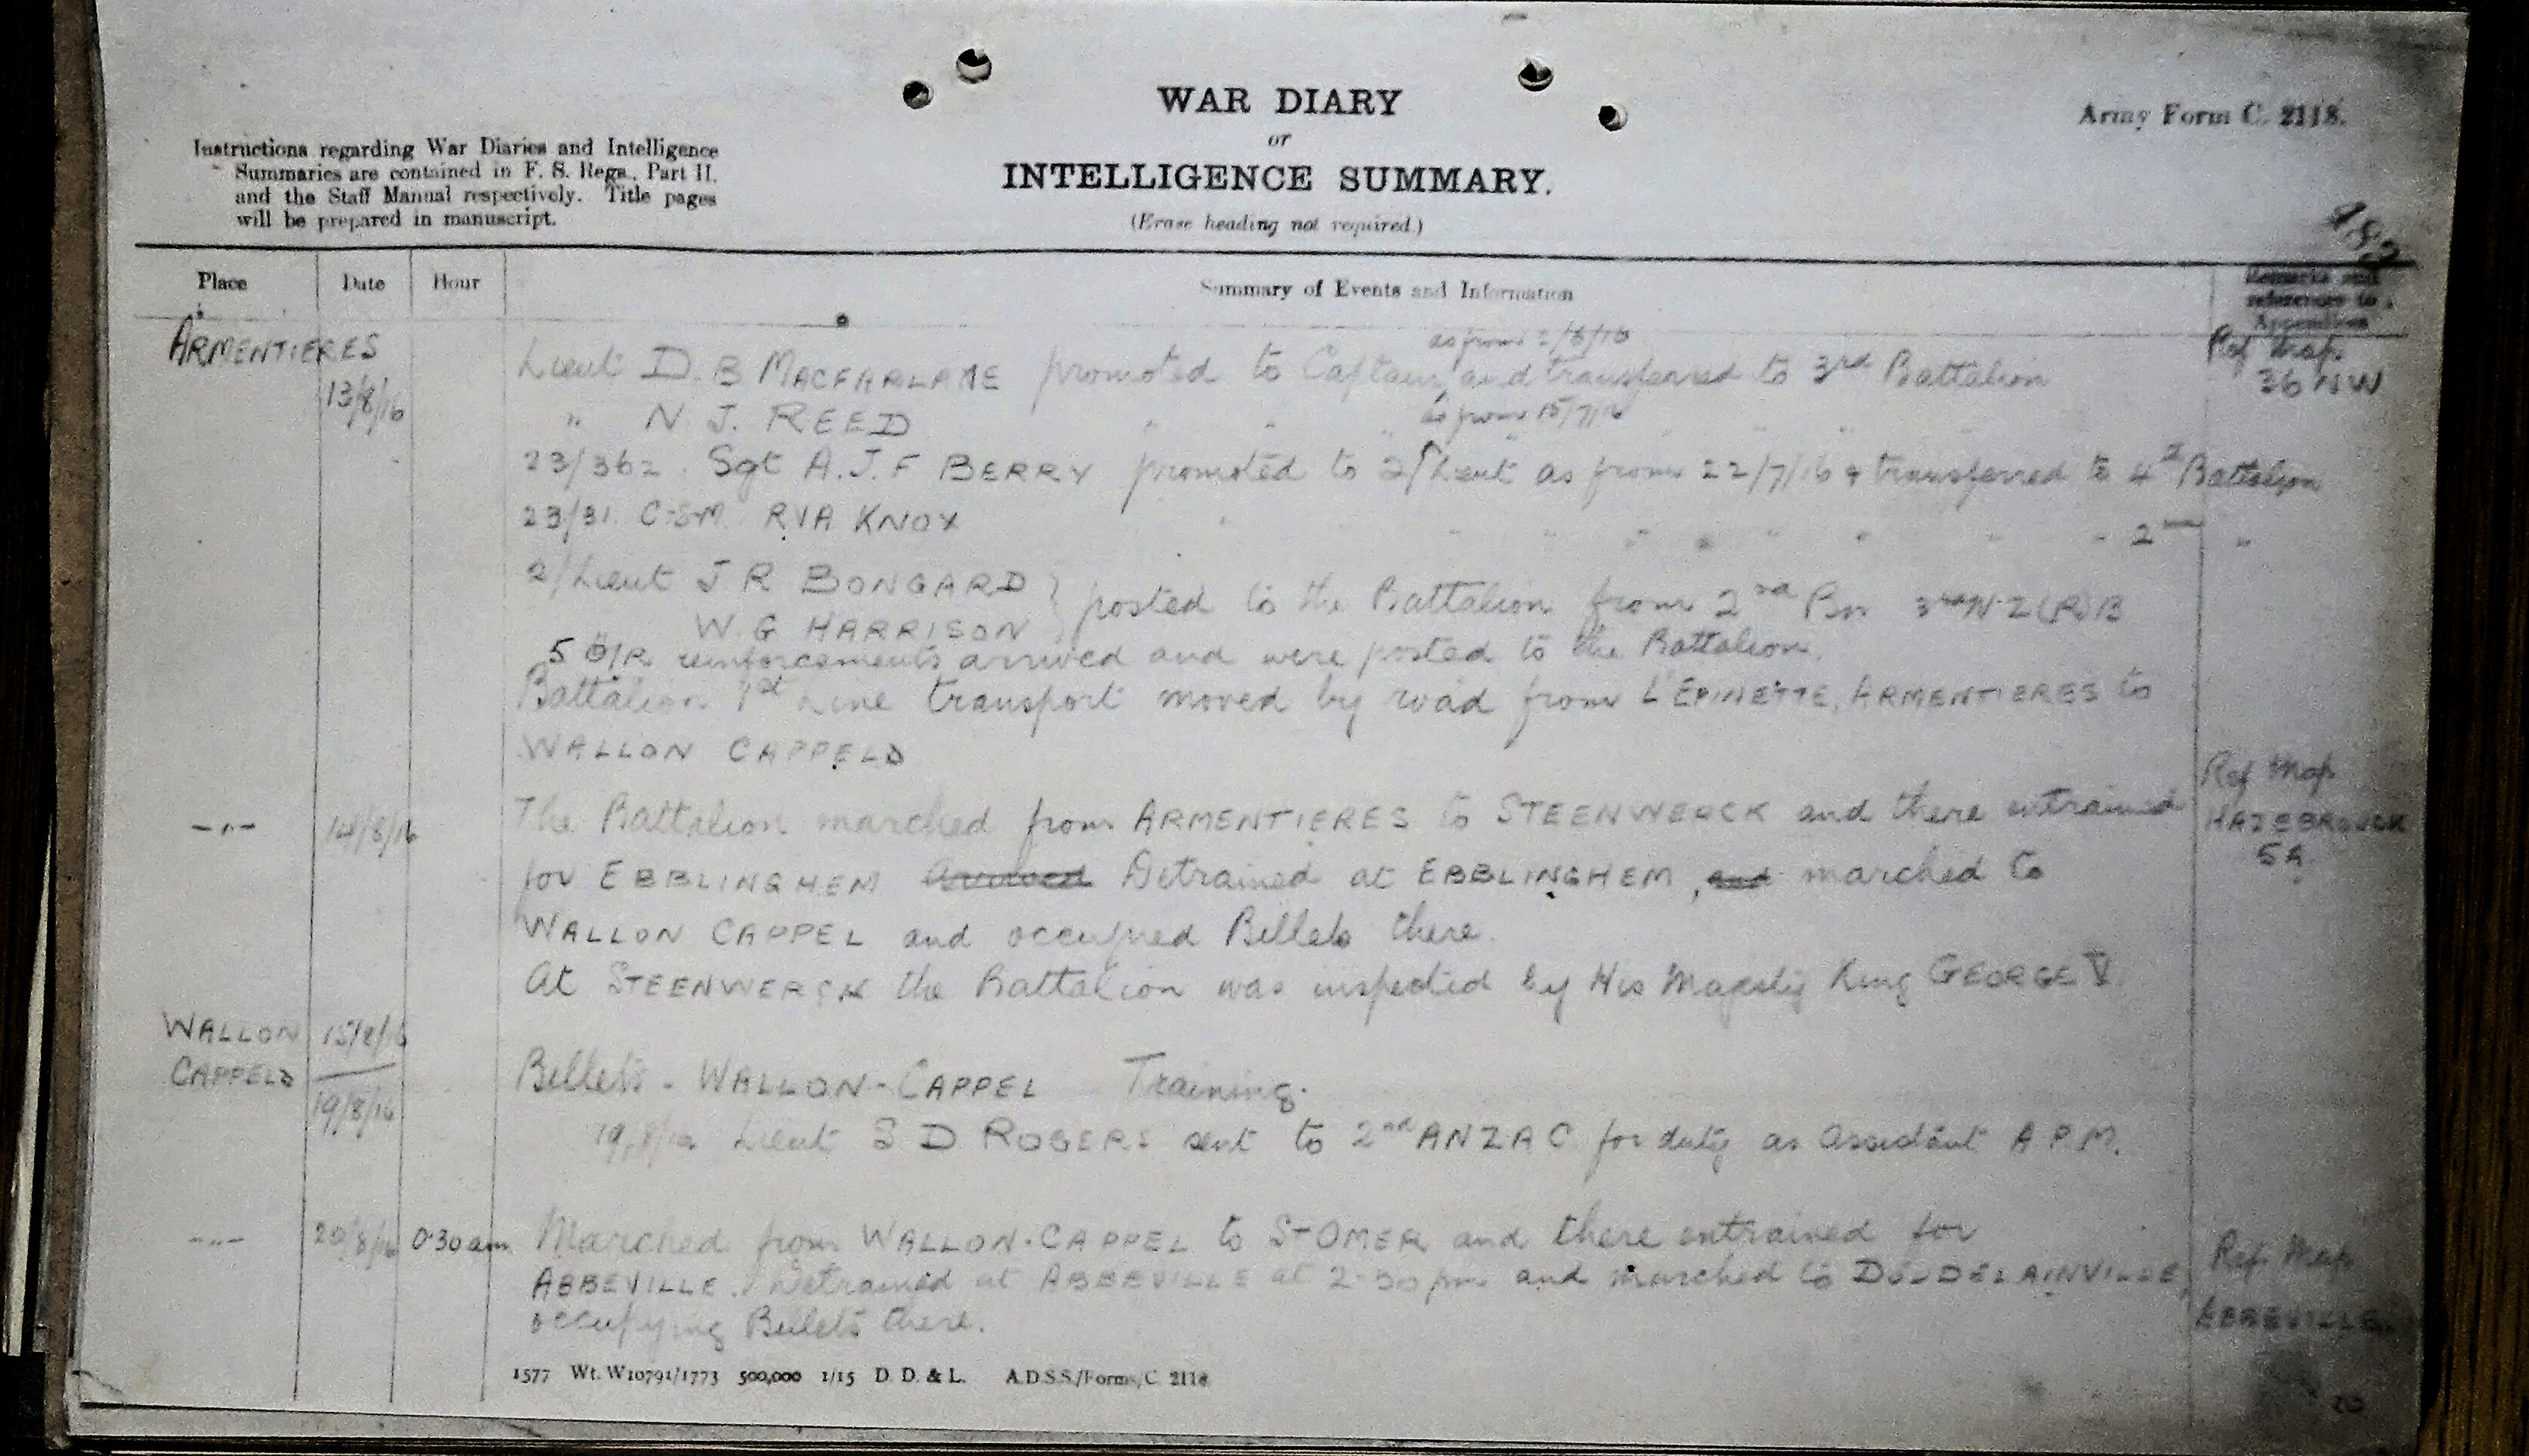 WAR DIARY
or
INTELLIGENCE SUMMARY.
(Erase heading not required.)
Army Form C. 2118.
Instructions regarding War Diaries and Intelligence
Summaries are contained in F. S. Regs., Part II.
and the Staff Manual respectively. Title pages
will be prepared in manuscript.
Place Date Hour Summary of Events and Information
Remarks and
references to
Appendices
ARMENTIERES
13/8/16
as from 2/8/16
Lieut D. B MACFARLANE promoted to Captain, and transferred to 3rd Battalion
Ref Map
36 NW
as from 15/7/16
" N. J. REED " " " " "
23/362. Sgt A. J. F BERRY promoted to 2/Lieut as from 22/7/16 & transferred to 4th Battalion
23/31. C.S.M. R V A KNOX " " " " " " " 2nd "
2/Lieut J R BONGARD } posted to the Battalion from 2nd Bn 3rd N.Z (R) B
W. G HARRISON
5 O/R reinforcements arrived and were posted to the Battalion.
Battalion 1st Line transport moved by road from L'EPINETTE, ARMENTIERES to
WALLON CAPPEL
-"- 14/8/16 The Battalion marched from ARMENTIERES to STEENWERCK and there entrained
Ref Map
HAZEBROUCK
5A.
for EBBLINGHEM Arrived Detrained at EBBLINGHEM, and marched to
WALLON CAPPEL and occupied Billets there.
At STEENWERCK the Battalion was inspected by His Majesty King GEORGE V.
WALLON
CAPPEL
15/8/16
19/8/16
Billets - WALLON-CAPPEL Training.
19/8/16 Lieut S D ROGERS sent to 2nd ANZAC for duty as Assistant A.P.M.
-"- 20/8/16 0.30 am Marched from WALLON-CAPPEL to ST OMER and there entrained for
ABBEVILLE. Detrained at ABBEVILLE at 2.30 pm and marched to DOUDELAINVILLE,
occupying Billets there.
Ref Map
ABBEVILLE.
1577 Wt. W10791/1773 500,000 1/15 D. D. & L. A.D.S.S./Forms/C. 2118